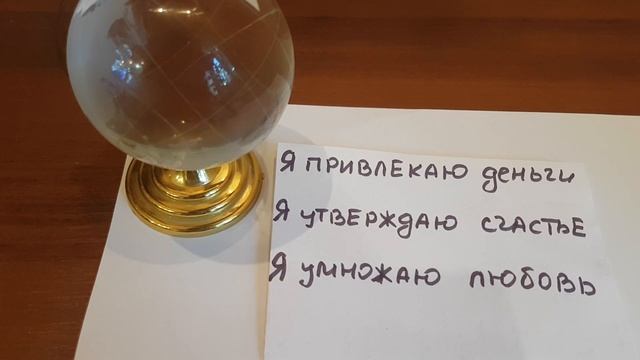 Я ПРИВЛЕКАЮ деньги
Я УТВЕРЖДАЮ СЧАСТЬЕ
Я УМНОЖАЮ ЛЮБОВЬ